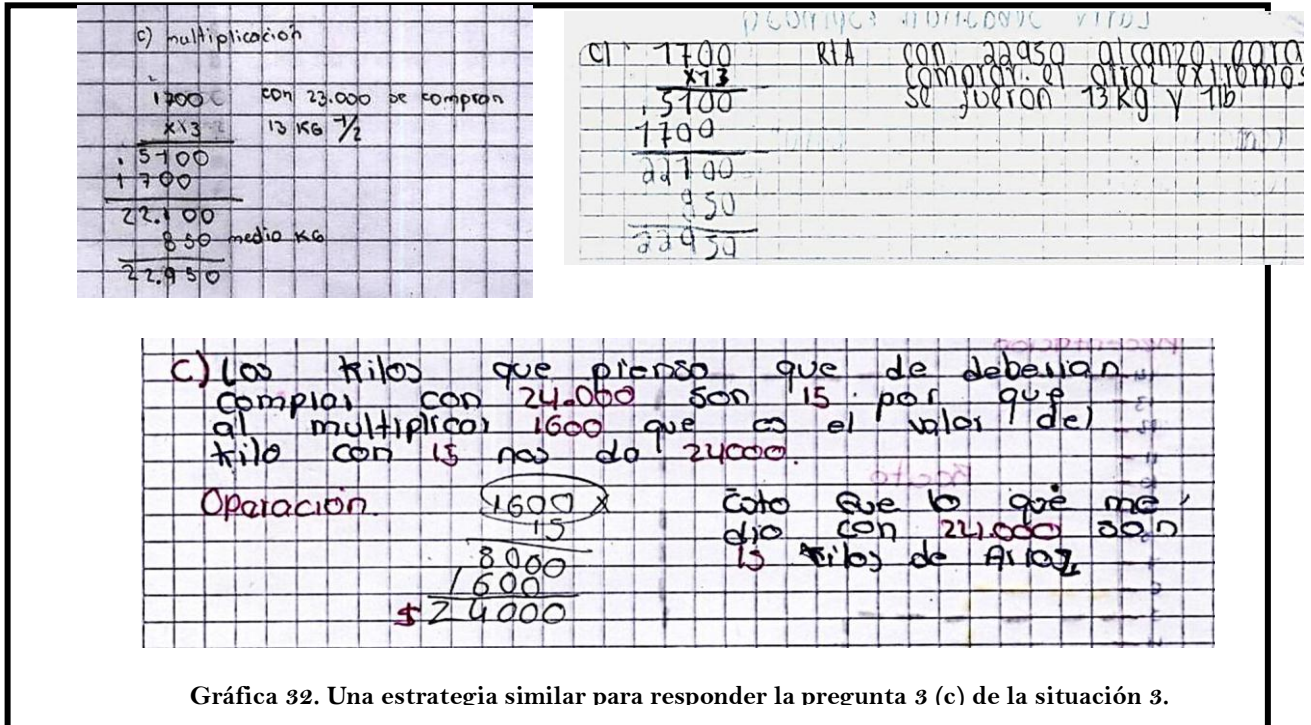 c) multiplicación
1700
x13
5100
1700
22.100
850 medio KG
22.950
con 23.000 se compran
13 KG 1/2
c) 1700
x13
5100
1700
22100
850
22950
RTA con 22950 alcanzo para
comprar. el arroz extremos
se fueron 13 kg y 1lb
c) Los kilos que pienso que de deberian
comprar con 24.000 son 15 por que
al multiplicar 1600 que es el valor del
kilo con 15 nos da 24000.
Oparación.
1600 x
15
8000
1600
$ 24000
Esto que lo que me
dio con 24.000 son
15 kilos de Arroz
Gráfica 32. Una estrategia similar para responder la pregunta 3 (c) de la situación 3.